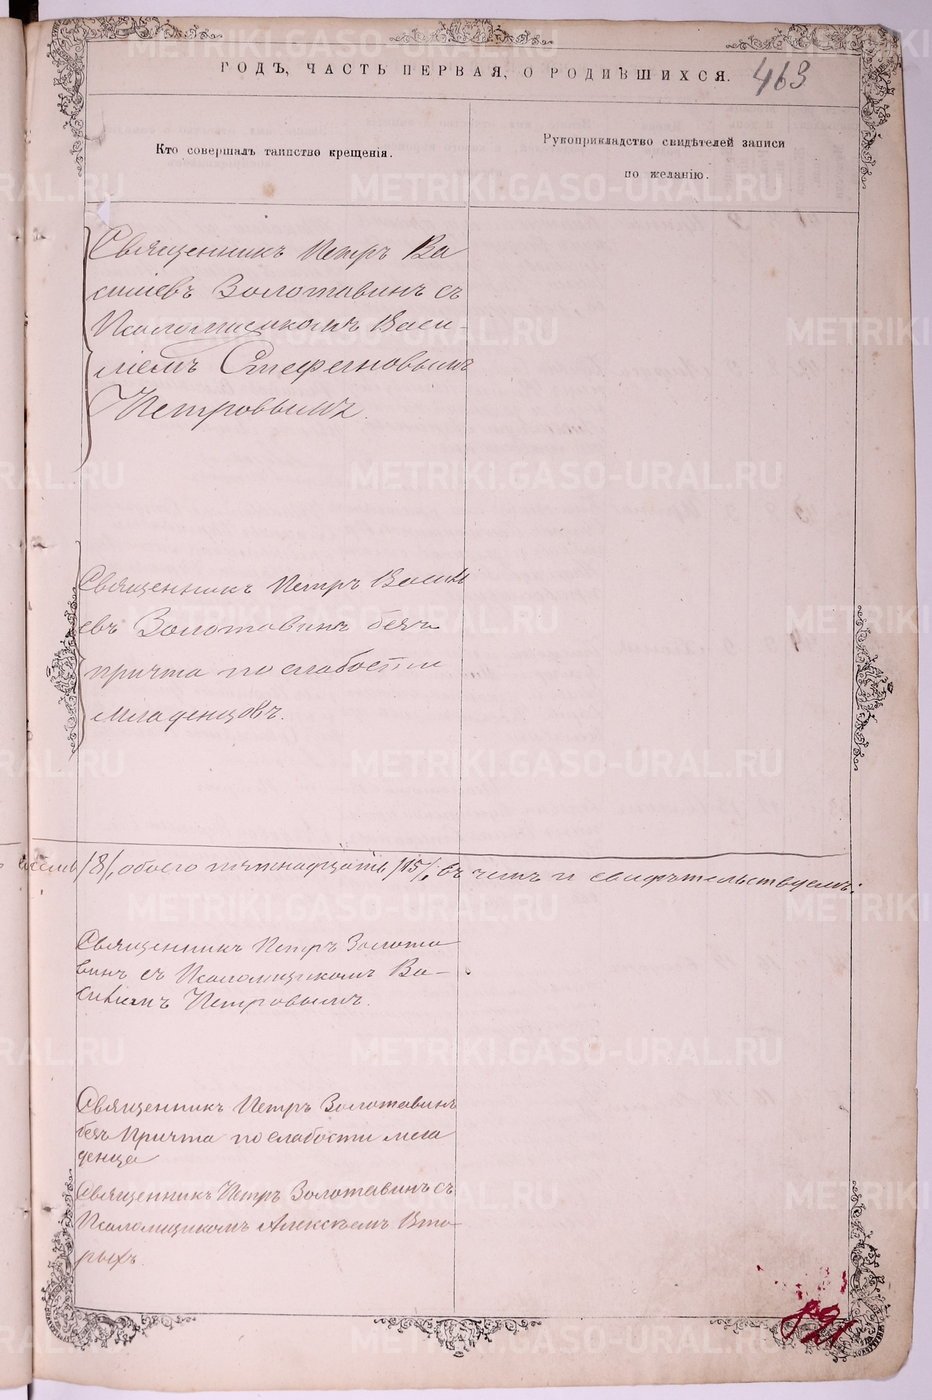 ГОДЪ, ЧАСТЬ ПЕРВАЯ, О РОДИВШИХСЯ. 463
Кто совершалъ таинство крещенія.
Рукоприкладство свидѣтелей записи
по желанію.
Священникъ Петръ Ва
силіевъ Золотавинъ съ
Псаломщикомъ Васи-
ліемъ Стефановымъ
Петровымъ.
Священникъ Петръ Васили
евъ Золотавинъ безъ
причта по слабости
младенцовъ.
восемь /8/, обоего пятнадцать /15/; въ чемъ и свидѣтельствуемъ:
Священникъ Петръ Золота
винъ съ Псаломщикомъ Ва-
силіемъ Петровымъ.
Священникъ Петръ Золотавинъ
безъ Причта по слабости мла
денца
Священникъ Петръ Золотавинъ съ
Псаломщикомъ Алексѣемъ Вто-
рыхъ.
891
METRIKI.GASO-URAL.RU